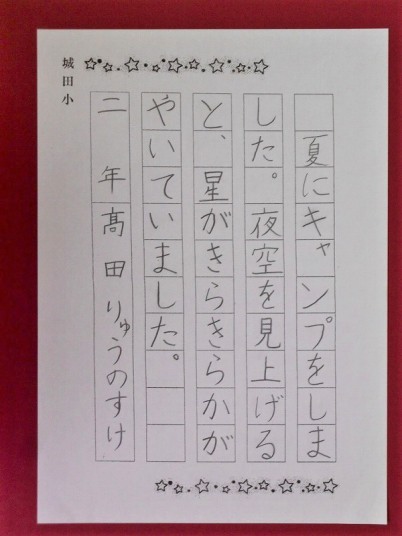 夏にキャンプをしま
した。夜空を見上げる
と、星がきらきらかが
やいていました。
二年髙田りゅうのすけ
城田小